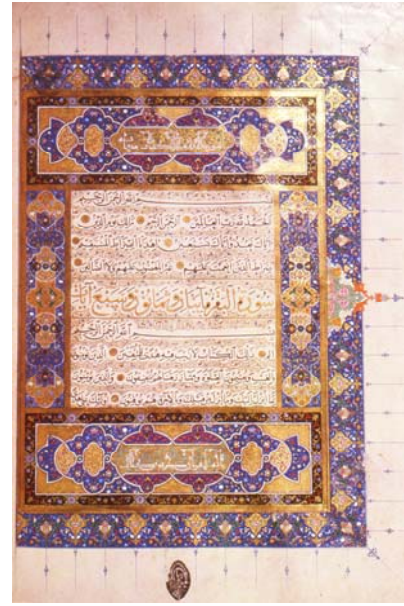 بسم الله الرحمن الرحيم
الحمد لله رب العالمين الرحمن الرحيم ملك يوم الدين
اياك نعبد واياك نستعين اهدنا الصراط المستقيم
صراط الذين انعمت عليهم غير المغضوب عليهم ولا الضالين
سورة البقرة مائتان وثمانون وسبع آيات
بسم الله الرحمن الرحيم
الم ذلك الكتاب لا ريب فيه هدى للمتقين الذين يؤمنون
بالغيب ويقيمون الصلوة ومما رزقناهم ينفقون والذين يؤمنون
بما انزل اليك وما انزل من قبلك وبالاخرة هم يوقنون